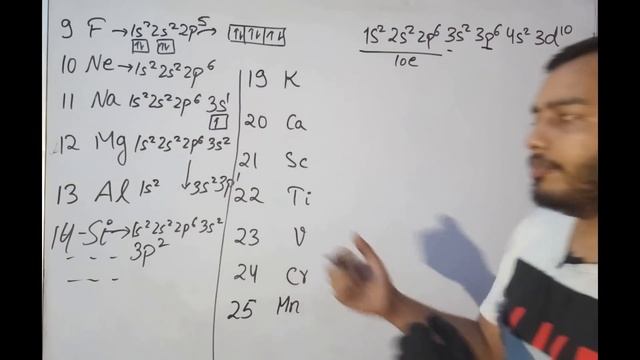 9 F → 1s² 2s² 2p⁵ →
10 Ne → 1s² 2s² 2p⁶
11 Na 1s² 2s² 2p⁶ 3s¹
12 Mg 1s² 2s² 2p⁶ 3s²
13 Al 1s² ↓ 3s² 3p¹
14 - Si → 1s² 2s² 2p⁶ 3s²
3p²
19 K
20 Ca
21 Sc
22 Ti
23 V
24 Cr
25 Mn
1s² 2s² 2p⁶ 3s² 3p⁶ 4s² 3d¹⁰
10e